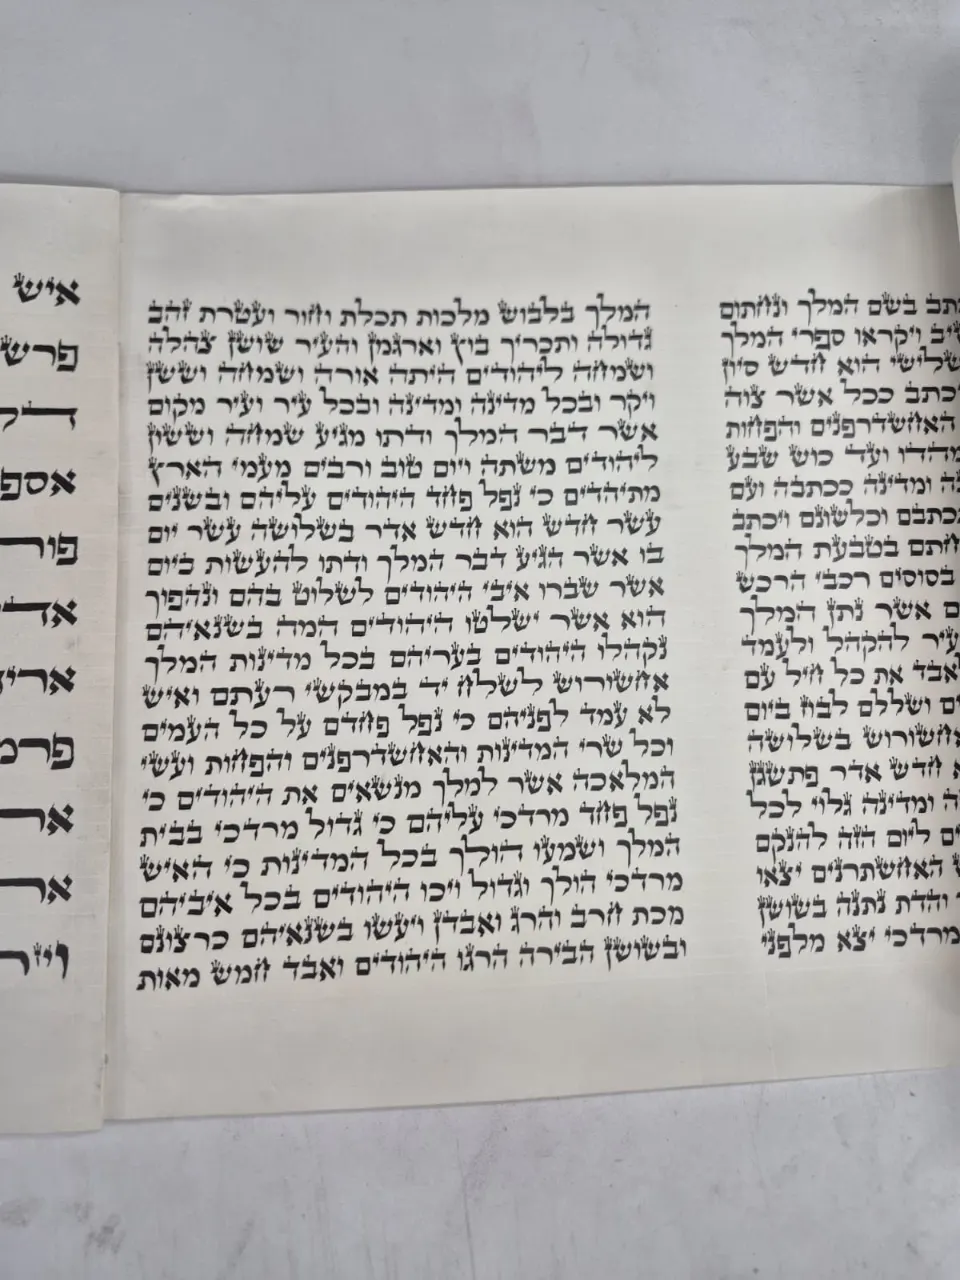 בשם המלך ונחתום
ויקראו ספרי המלך
הוא חדש סיון
ככל אשר צוה
האחשדרפנים והפחות
ועד כוש שבע
ומדינה ככתבה ועם
וכלשונם ויכתב
בטבעת המלך
בסוסים רכבי הרכש
אשר נתן המלך
להקהל ולעמד
את כל חיל עם
ושללם לבוז ביום
בשלושה
חדש אדר פתשגן
ומדינה גלוי לכל
ליום הזה להנקם
האחשתרנים יצאו
והדת נתנה בשושן
יצא מלפני
המלך בלבוש מלכות תכלת וחור ועטרת זהב
גדולה ותכריך בוץ וארגמן והעיר שושן צהלה
ושמחה ליהודים היתה אורה ושמחה וששן
ויקר ובכל מדינה ומדינה ובכל עיר ועיר מקום
אשר דבר המלך ודתו מגיע שמחה וששון
ליהודים משתה ויום טוב ורבים מעמי הארץ
מתיהדים כי נפל פחד היהודים עליהם ובשנים
עשר חדש הוא חדש אדר בשלושה עשר יום
בו אשר הגיע דבר המלך ודתו להעשות ביום
אשר שברו איבי היהודים לשלוט בהם ונהפוך
הוא אשר ישלטו היהודים המה בשנאיהם
נקהלו היהודים בעריהם בכל מדינות המלך
אחשורוש לשלח יד במבקשי רעתם ואיש
לא עמד לפניהם כי נפל פחדם על כל העמים
וכל שרי המדינות והאחשדרפנים והפחות ועשי
המלאכה אשר למלך מנשאים את היהודים כי
נפל פחד מרדכי עליהם כי גדול מרדכי בבית
המלך ושמעו הולך בכל המדינות כי האיש
מרדכי הולך וגדול ויכו היהודים בכל איביהם
מכת חרב והרג ואבדן ויעשו בשנאיהם כרצונם
ובשושן הבירה הרגו היהודים ואבד חמש מאות
איש